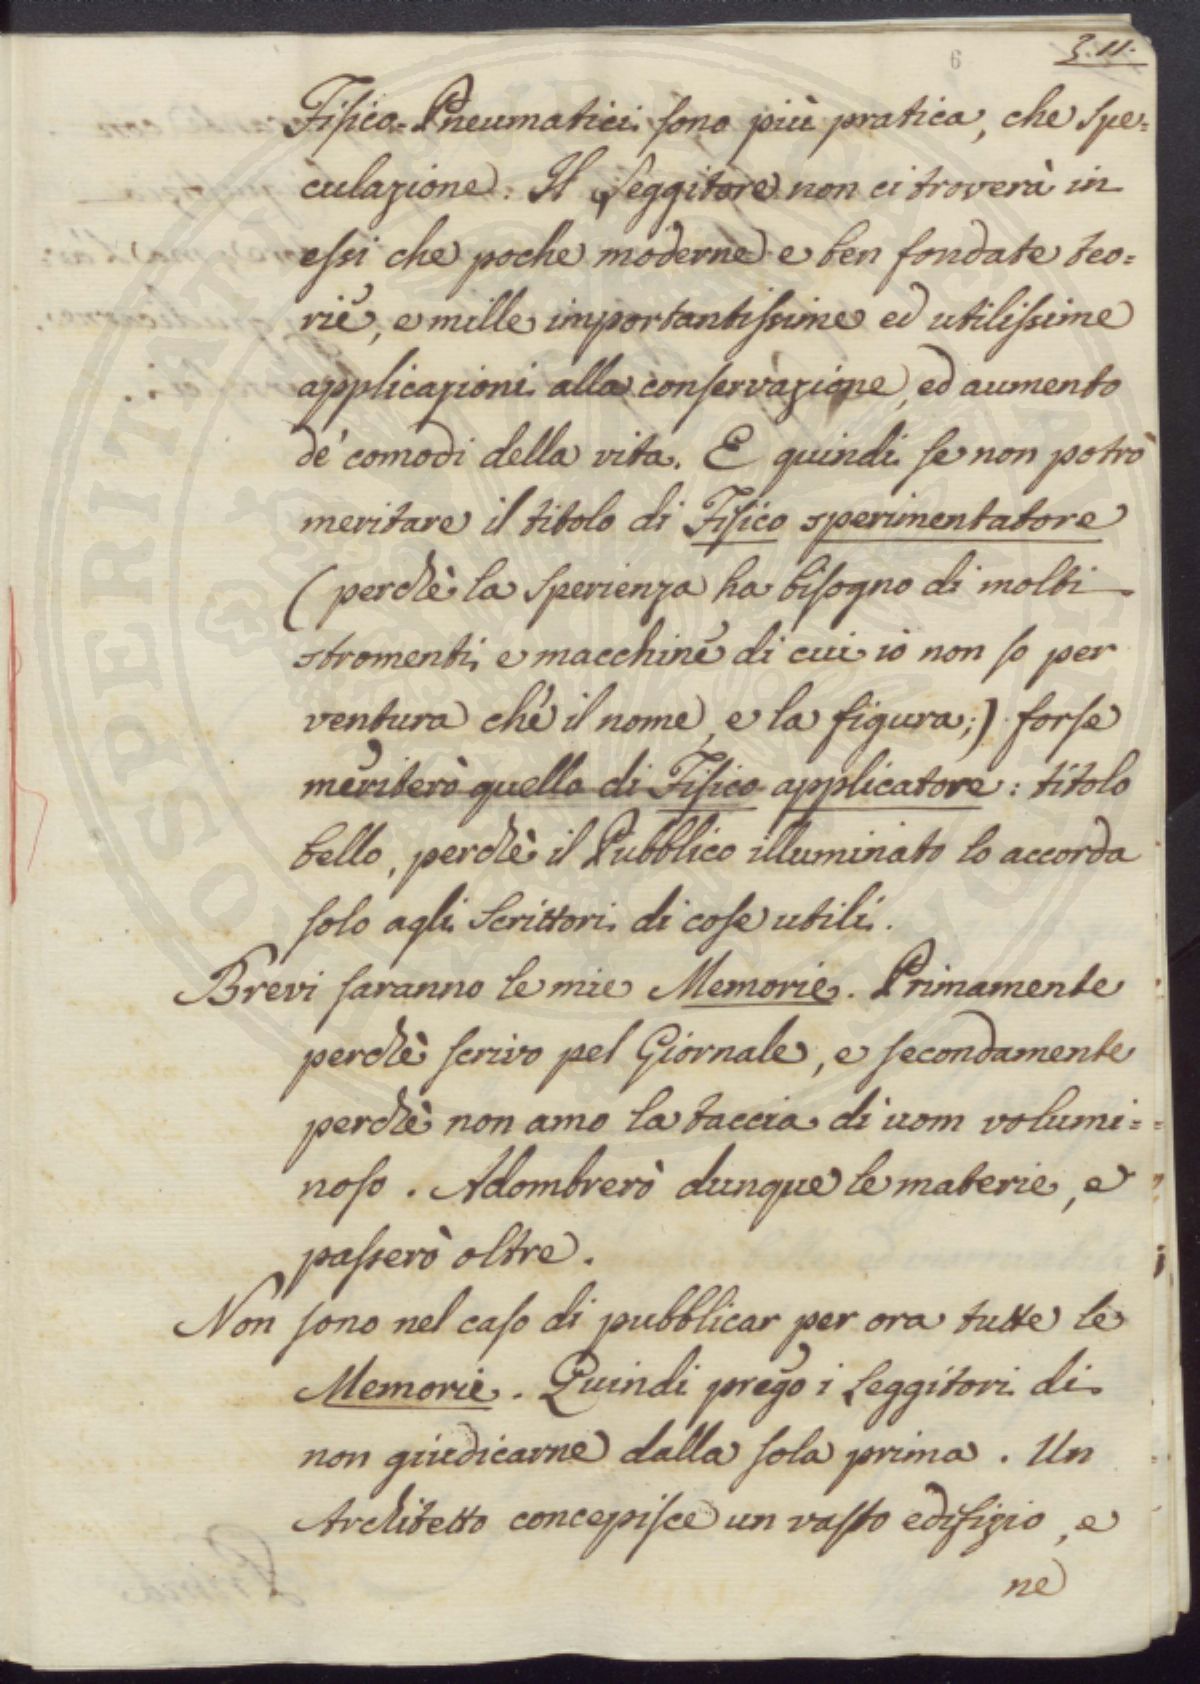 6
3.11.
Fisico=Pneumatici sono più pratica, che spe=
culazione. Il Leggitore non ci troverà in
essi che poche moderne e ben fondate teo=
rie, e mille importantissime ed utilissime
applicazioni alla conservazione, ed aumento
de' comodi della vita. E quindi se non potrò
meritare il titolo di Fisico sperimentatore
(perchè la sperienza ha bisogno di molti
stromenti, e macchine di cui io non so per
ventura che il nome, e la figura;) forse
meriterò quello di Fisico applicatore: titolo
bello, perchè il Pubblico illuminato lo accorda
solo agli Scrittori di cose utili.
Brevi saranno le mie Memorie. Primamente
perchè scrivo pel Giornale, e secondamente
perchè non amo la taccia di uom volumi=
noso. Adombrerò dunque le materie, e
passerò oltre.
Non sono nel caso di pubblicar per ora tutte le
Memorie. Quindi prego i Leggitori di
non giudicarne dalla sola prima. Un
Architetto concepisce un vasto edifizio, e
ne